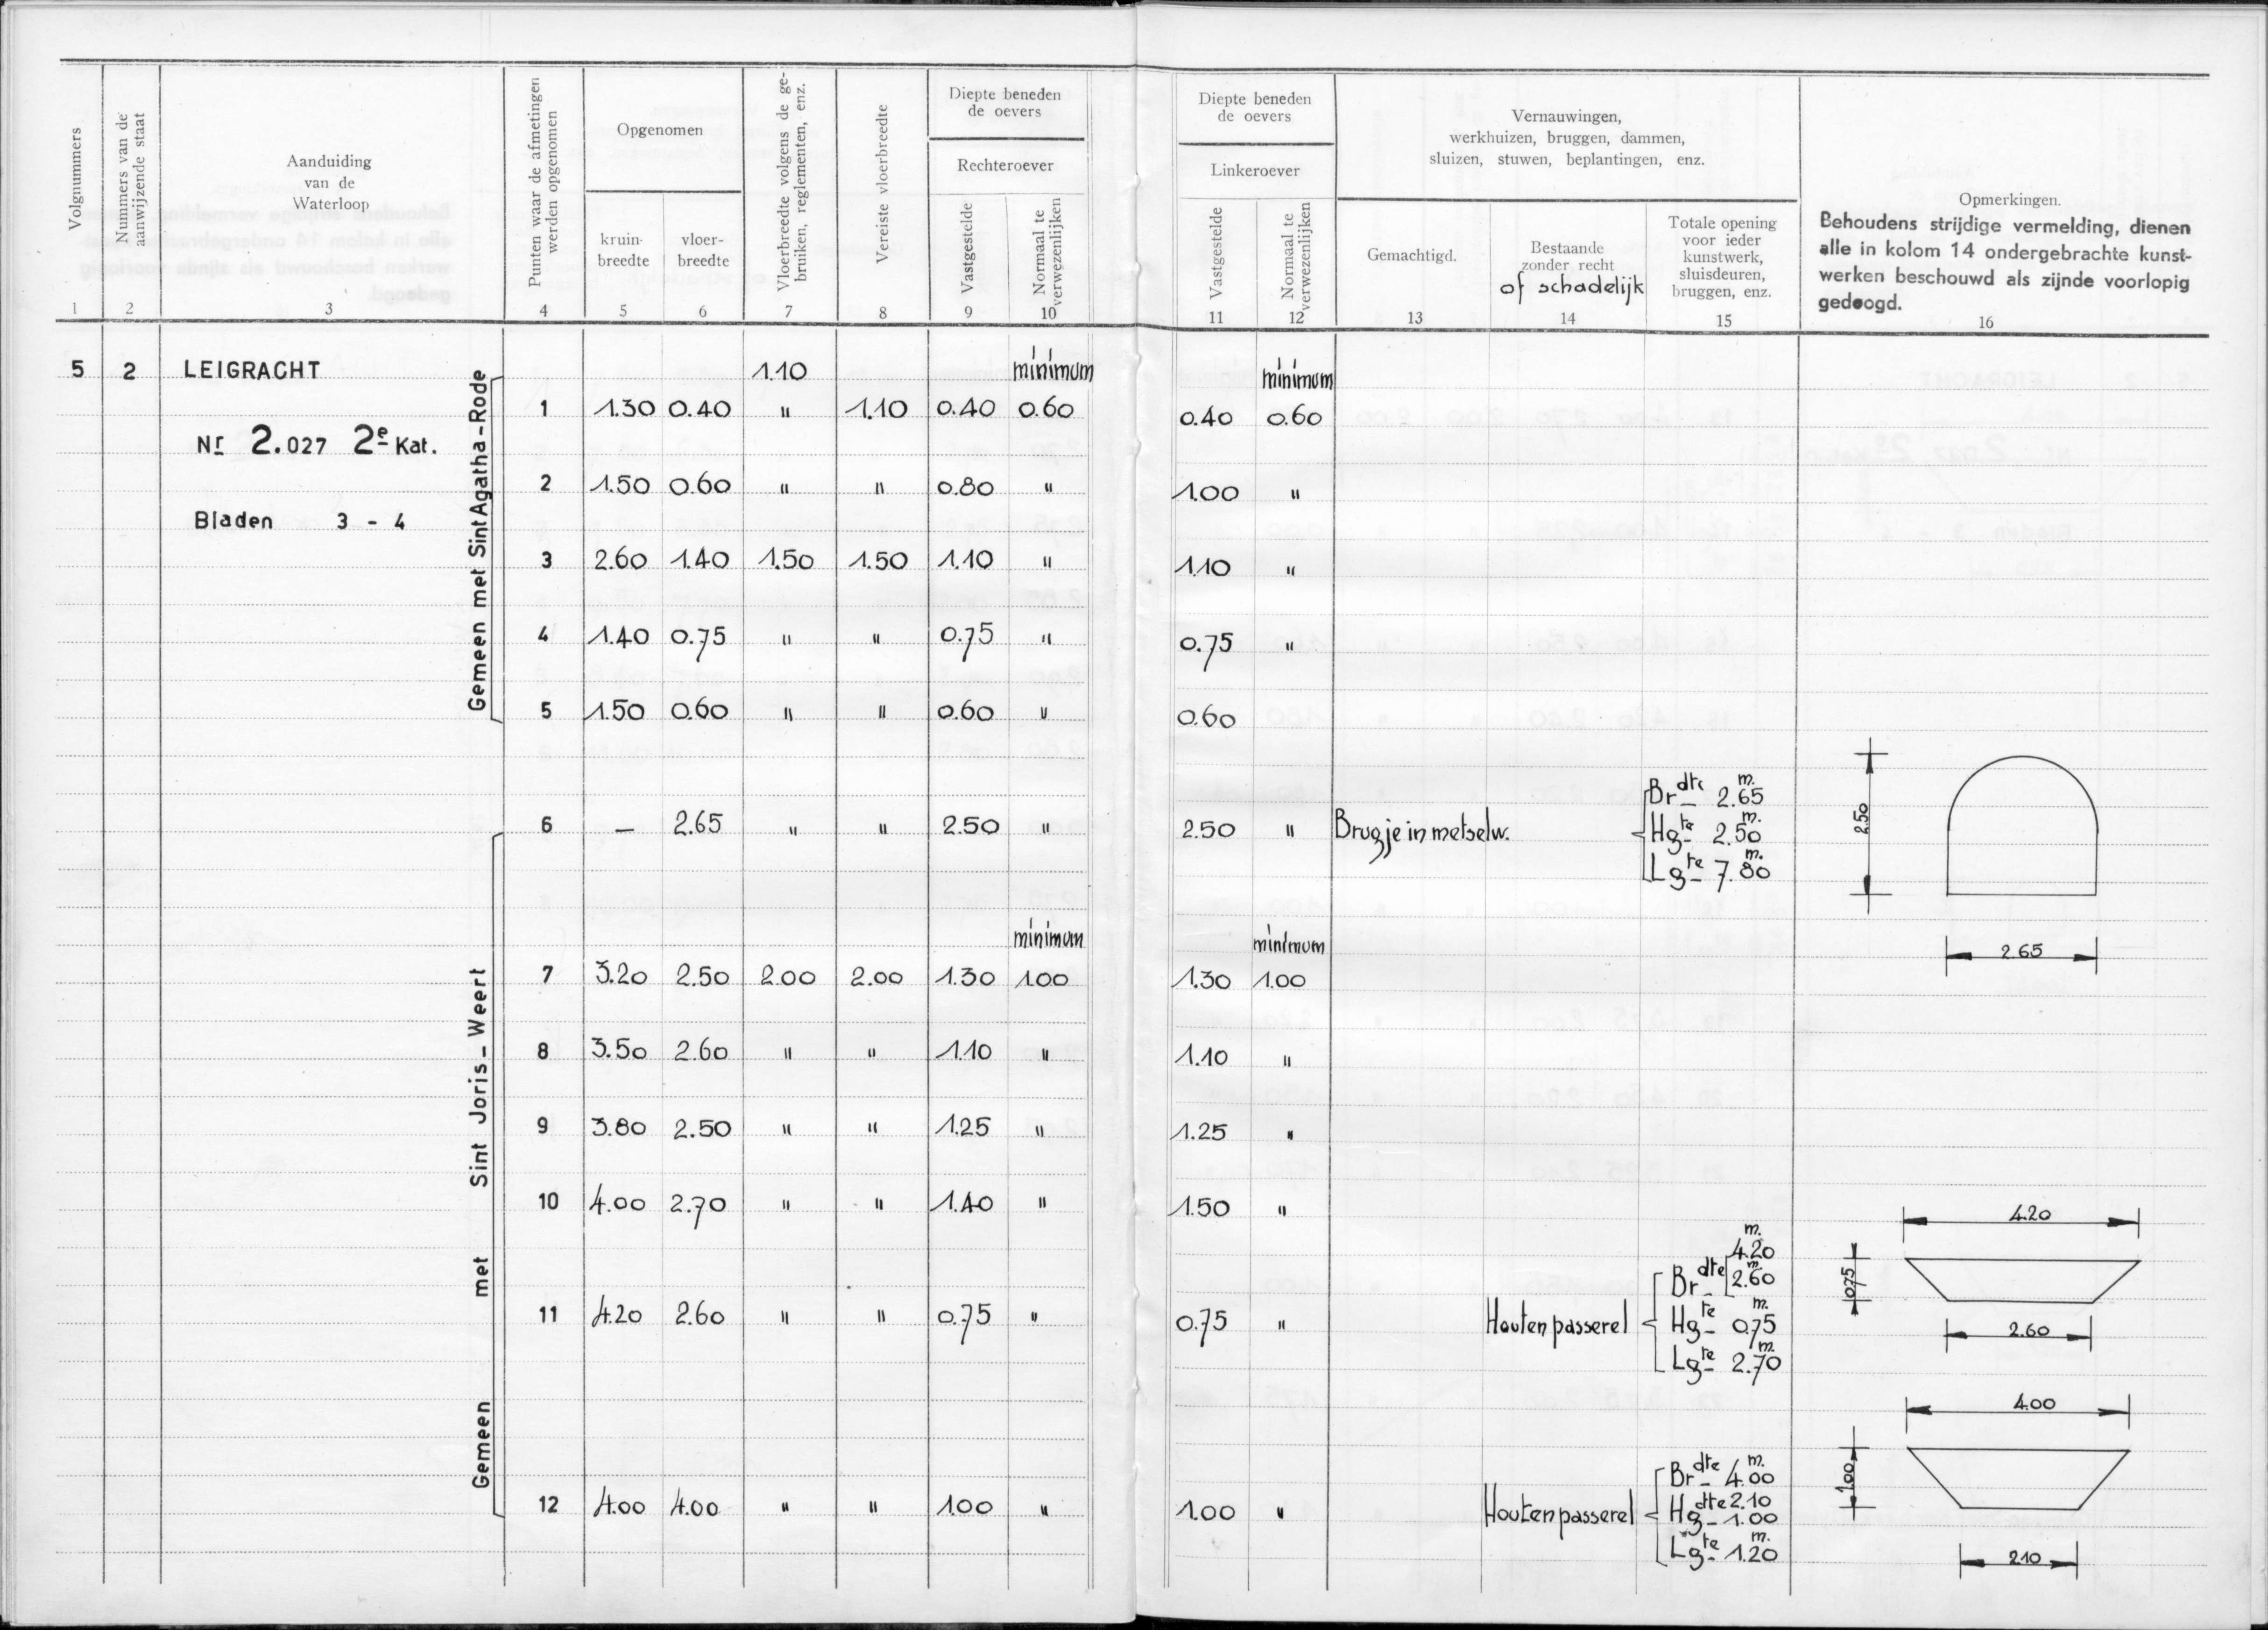 Volgnummers
1
Nummers van de
aanwijzende staat
2
Aanduiding
van de
Waterloop
3
Punten waar de afmetingen
werden opgenomen
4
Opgenomen
kruin-
breedte
5
vloer-
breedte
6
Vloerbreedte volgens de ge-
bruiken, reglementen, enz.
7
Vereiste vloerbreedte
8
Diepte beneden
de oevers
Rechteroever
Vastgestelde
9
Normaal te
verwezenlijken
10
Diepte beneden
de oevers
Linkeroever
Vastgestelde
11
Normaal te
verwezenlijken
12
Vernauwingen,
werkhuizen, bruggen, dammen,
sluizen, stuwen, beplantingen, enz.
Gemachtigd.
13
Bestaande
zonder recht
of schadelijk
14
Totale opening
voor ieder
kunstwerk,
sluisdeuren,
bruggen, enz.
15
Opmerkingen.
Behoudens strijdige vermelding, dienen
alle in kolom 14 ondergebrachte kunst-
werken beschouwd als zijnde voorlopig
gedoogd.
16
5 2 LEIGRACHT 1.10 minimum minimum
Nr 2.027 2e Kat.
Bladen 3 - 4
Gemeen met Sint Agatha-Rode
1 1.30 0.40 " 1.10 0.40 0.60 0.40 0.60
2 1.50 0.60 " " 0.80 " 1.00 "
3 2.60 1.40 1.50 1.50 1.10 " 1.10 "
4 1.40 0.75 " " 0.75 " 0.75 "
5 1.50 0.60 " " 0.60 " 0.60
Gemeen met Sint Joris-Weert
6 — 2.65 " " 2.50 " 2.50 " Brugje in metselw.
Brdte 2.65 m.
Hgte 2.50 m.
Lgte 7.80 m.
2.50
2.65
minimum minimum
7 3.20 2.50 2.00 2.00 1.30 1.00 1.30 1.00
8 3.50 2.60 " " 1.10 " 1.10 "
9 3.80 2.50 " " 1.25 " 1.25 "
10 4.00 2.70 " " 1.40 " 1.50 "
11 4.20 2.60 " " 0.75 " 0.75 " Houten passerel
Brdte 4.20 m.
2.60 m.
Hgte 0.75 m.
Lgte 2.70 m.
4.20
0.75
2.60
12 4.00 4.00 " " 1.00 " 1.00 " Houten passerel
Brdte 4.00 m.
dte 2.10
Hg 1.00
Lgte 1.20 m.
4.00
1.00
2.10